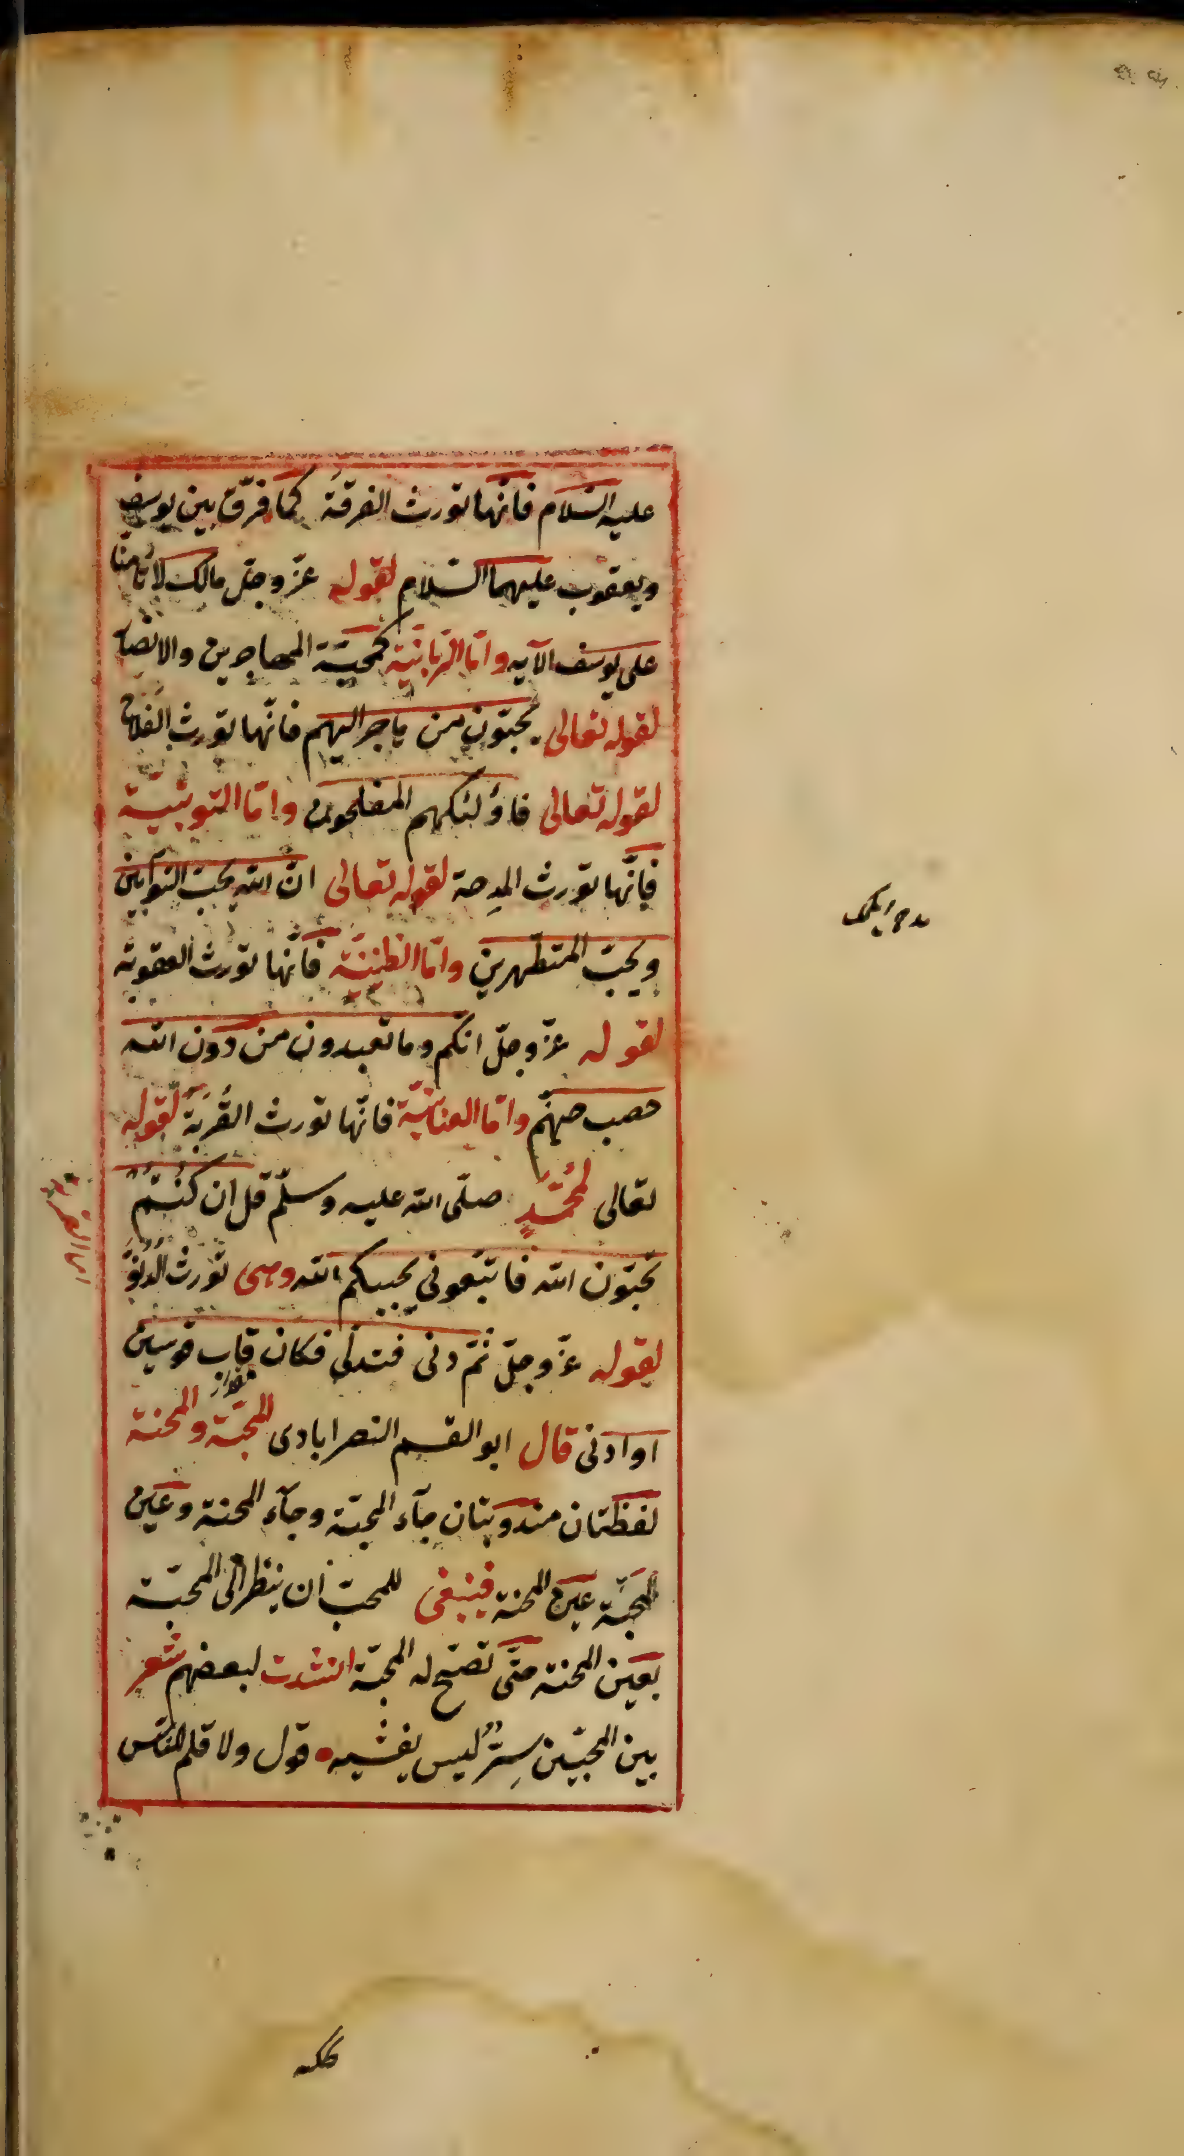 عليه السّلام فانّها تورث الفرقةَ كما فرّق بين يوسف
ويعقوب عليهما السّلام لقوله عزّوجلّ مالك لا تأمنّا
على يوسف الآيه وامّا الرّبّانيّة كمحبّة المهاجرين والانصار
لقوله تعالى يحبّون من هاجر اليهم فانّها تورث الفلاح
لقوله تعالى فاُولئك هم المفلحون وامّا التوبتيّة
فانّها تورث المِدحة لقوله تعالى انّ الله يحبّ التوّابين
ويحبّ المتطهرين وامّا الظنيّة فانّها تورث العقوبة
لقوله عزّوجلّ انّكم وما تعبدون من دون الله
حصب جهنّم وامّا العنائيّة فانّها تورث القُربَةَ لقوله
تعالى لمُحمّدٍ صلّى الله عليه وسلّم قل ان كُنتُم
تحبّون الله فاتّبعوني يحببكم الله وهى تورث الدُنُوَّ
لقوله عزّوجلّ ثمّ دنى فتدلّى فكان قاب قوسين
او ادنى قال ابو القسم النصرابادى المحبّة والمحنة
لفظتان مندوبتان حآء المحبّة وحآء المحنة وعين
المحبّة عين المحنة فينبغى للمحبّ أن ينظر الى المحبّة
بعين المحنة حتّى تصحّ له المحبّة انشدت لبعضهم شعر
بين المحبّين سِرٌّ ليس يفشيه قول ولا قلم للنّاس